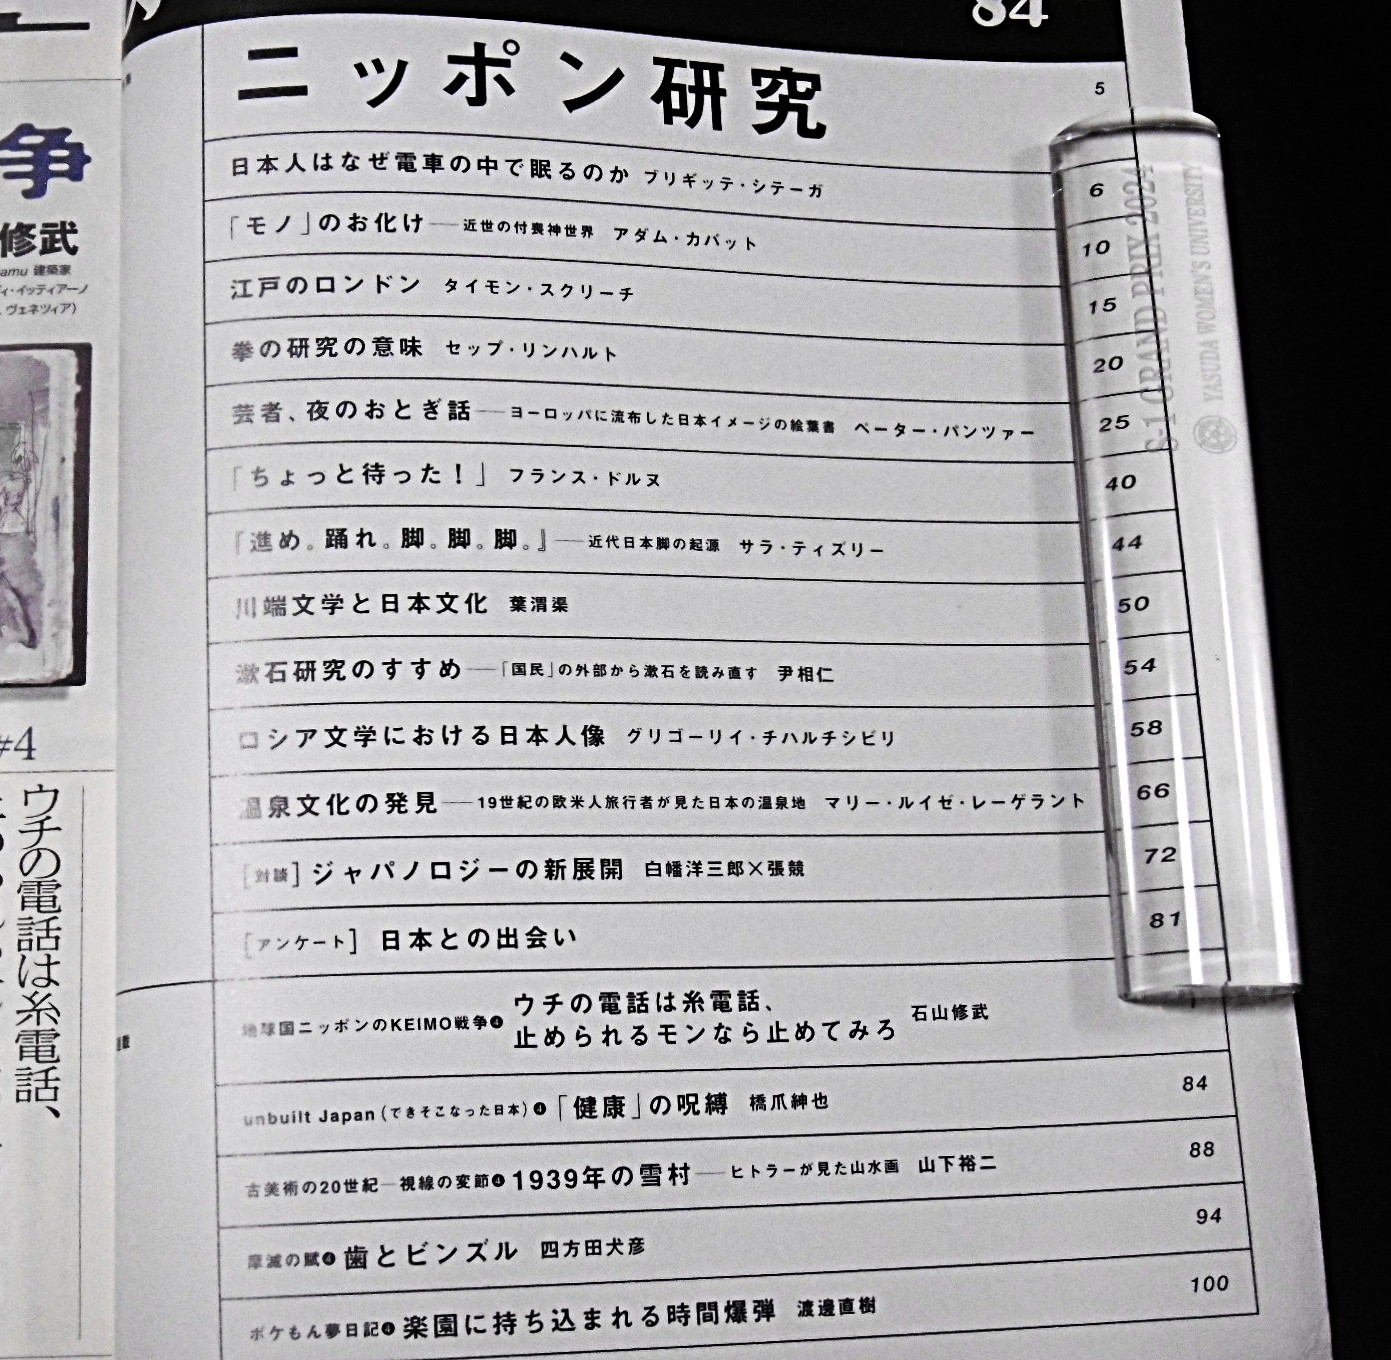 争
修武
amu 建築家
ィ・イッティアーノ
ヴェネツィア)
#4
ウチの電話は糸電話、
84
ニッポン研究 5
日本人はなぜ電車の中で眠るのか ブリギッテ・シテーガ 6
「モノ」のお化け──近世の付喪神世界 アダム・カバット 10
江戸のロンドン タイモン・スクリーチ 15
拳の研究の意味 セップ・リンハルト 20
芸者、夜のおとぎ話──ヨーロッパに流布した日本イメージの絵葉書 ペーター・パンツァー 25
「ちょっと待った!」 フランス・ドルヌ 40
『進め。踊れ。脚。脚。脚。』──近代日本脚の起源 サラ・ティズリー 44
川端文学と日本文化 葉渭渠 50
漱石研究のすすめ──「国民」の外部から漱石を読み直す 尹相仁 54
ロシア文学における日本人像 グリゴーリイ・チハルチシビリ 58
温泉文化の発見──19世紀の欧米人旅行者が見た日本の温泉地 マリー・ルイゼ・レーゲラント 66
[対談] ジャパノロジーの新展開 白幡洋三郎×張競 72
[アンケート] 日本との出会い 81
地球国ニッポンのKEIMO戦争❹ ウチの電話は糸電話、
止められるモンなら止めてみろ 石山修武
unbuilt Japan(できそこなった日本)❹「健康」の呪縛 橋爪紳也 84
古美術の20世紀─視線の変節❹ 1939年の雪村──ヒトラーが見た山水画 山下裕二 88
摩滅の賦❹ 歯とビンズル 四方田犬彦 94
ポケもん夢日記❹ 楽園に持ち込まれる時間爆弾 渡邊直樹 100
GRAND PRIX 2024
YASUDA WOMEN'S UNIVERSITY